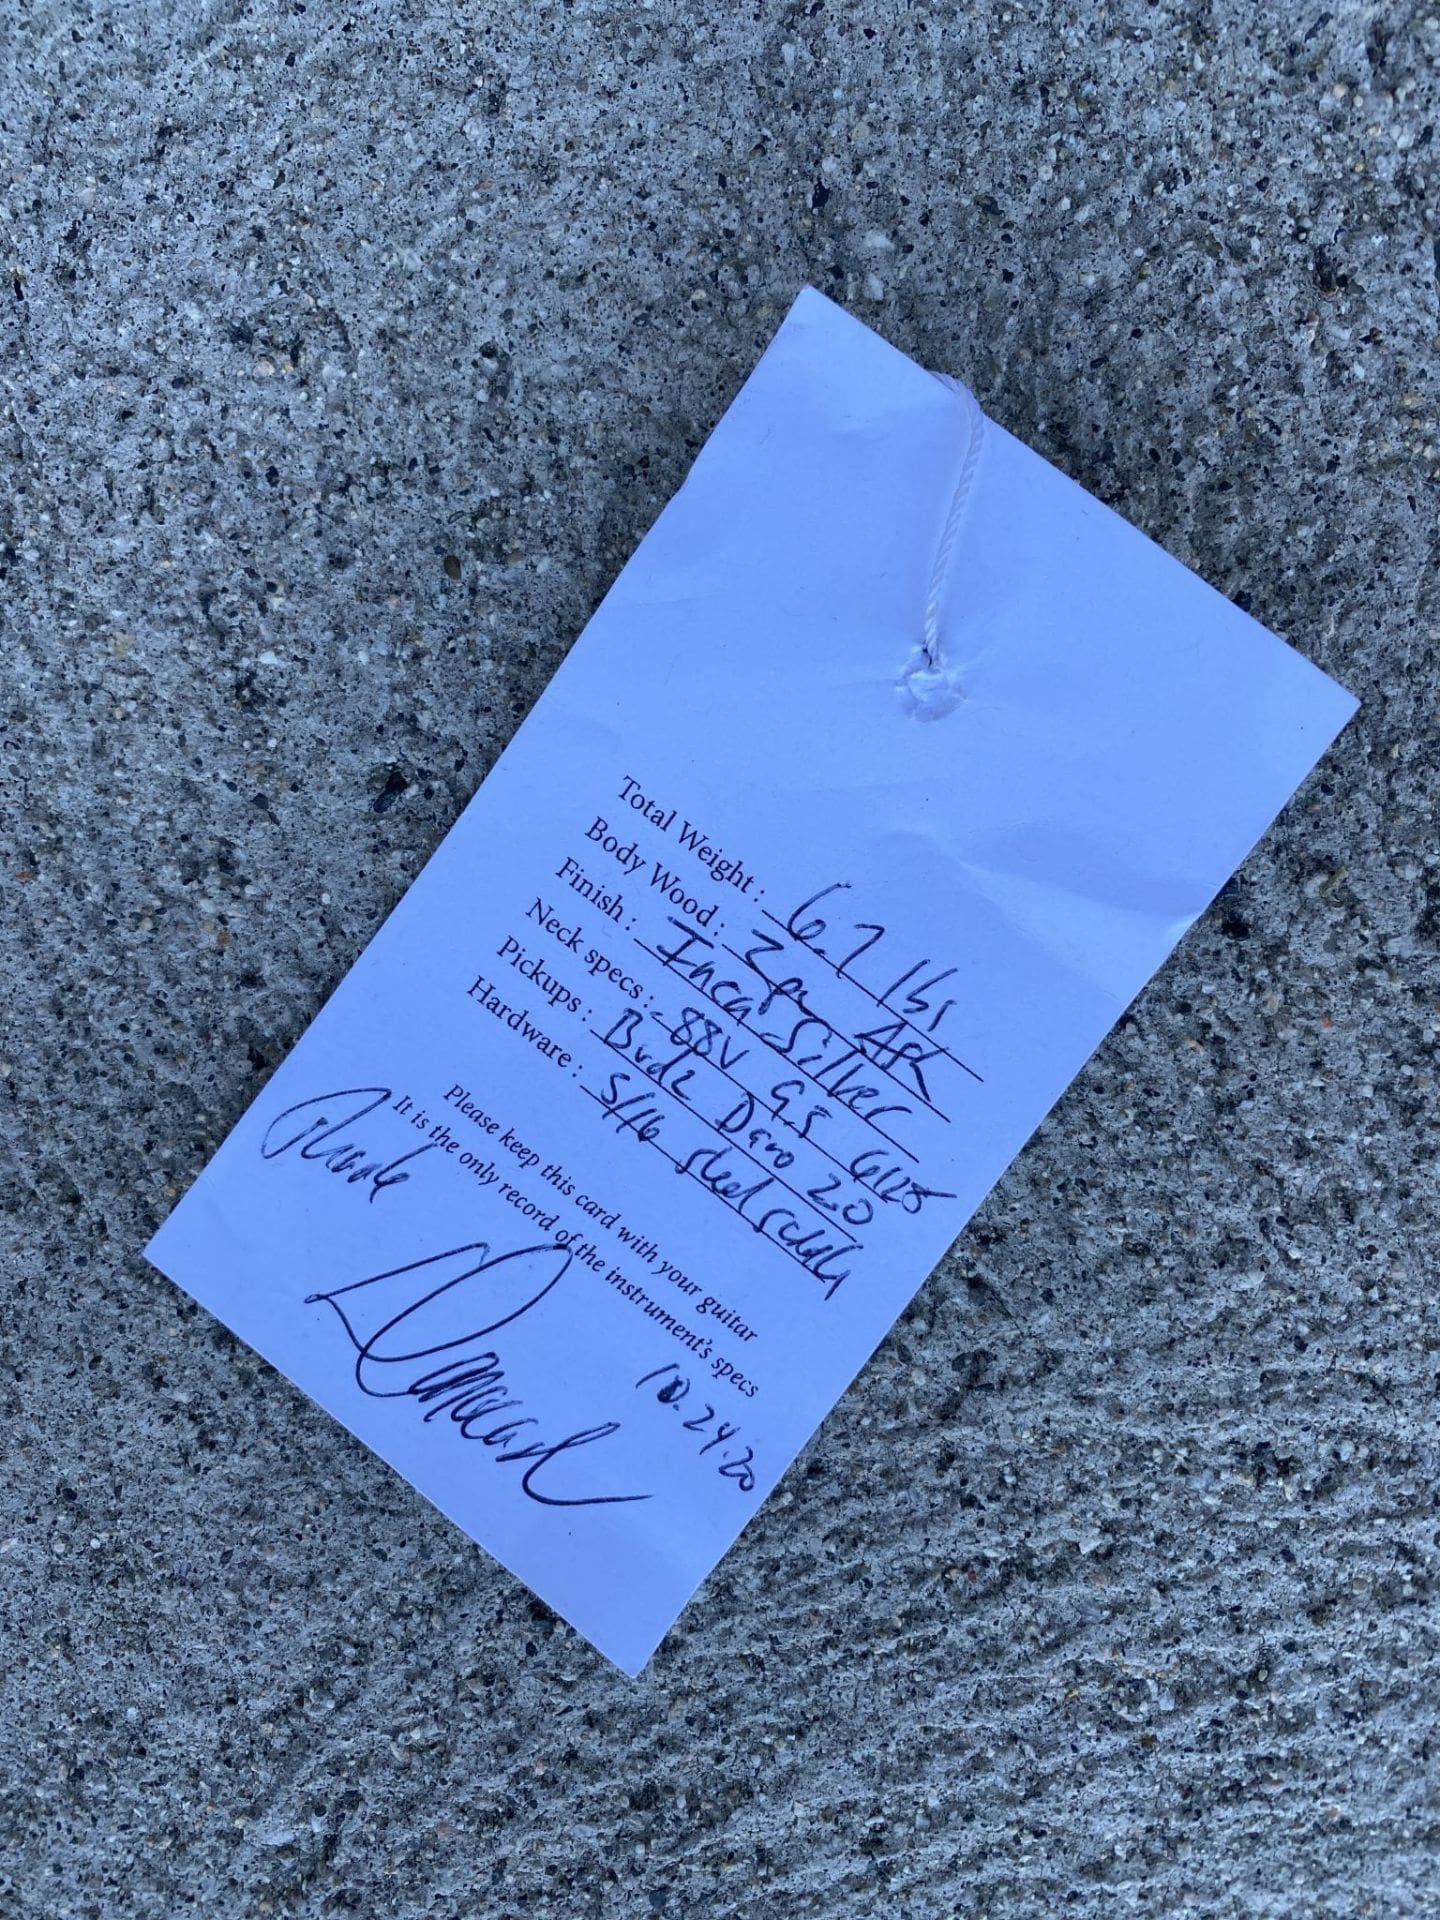 Total Weight : 6.7 lbs
Body Wood : 2pc Ash
Finish : Inca Silver
Neck specs : .88V 9.5 6105
Pickups : Dano 2.0
Hardware : 5/16 steel
Please keep this card with your guitar
It is the only record of the instrument's specs
10.24.20